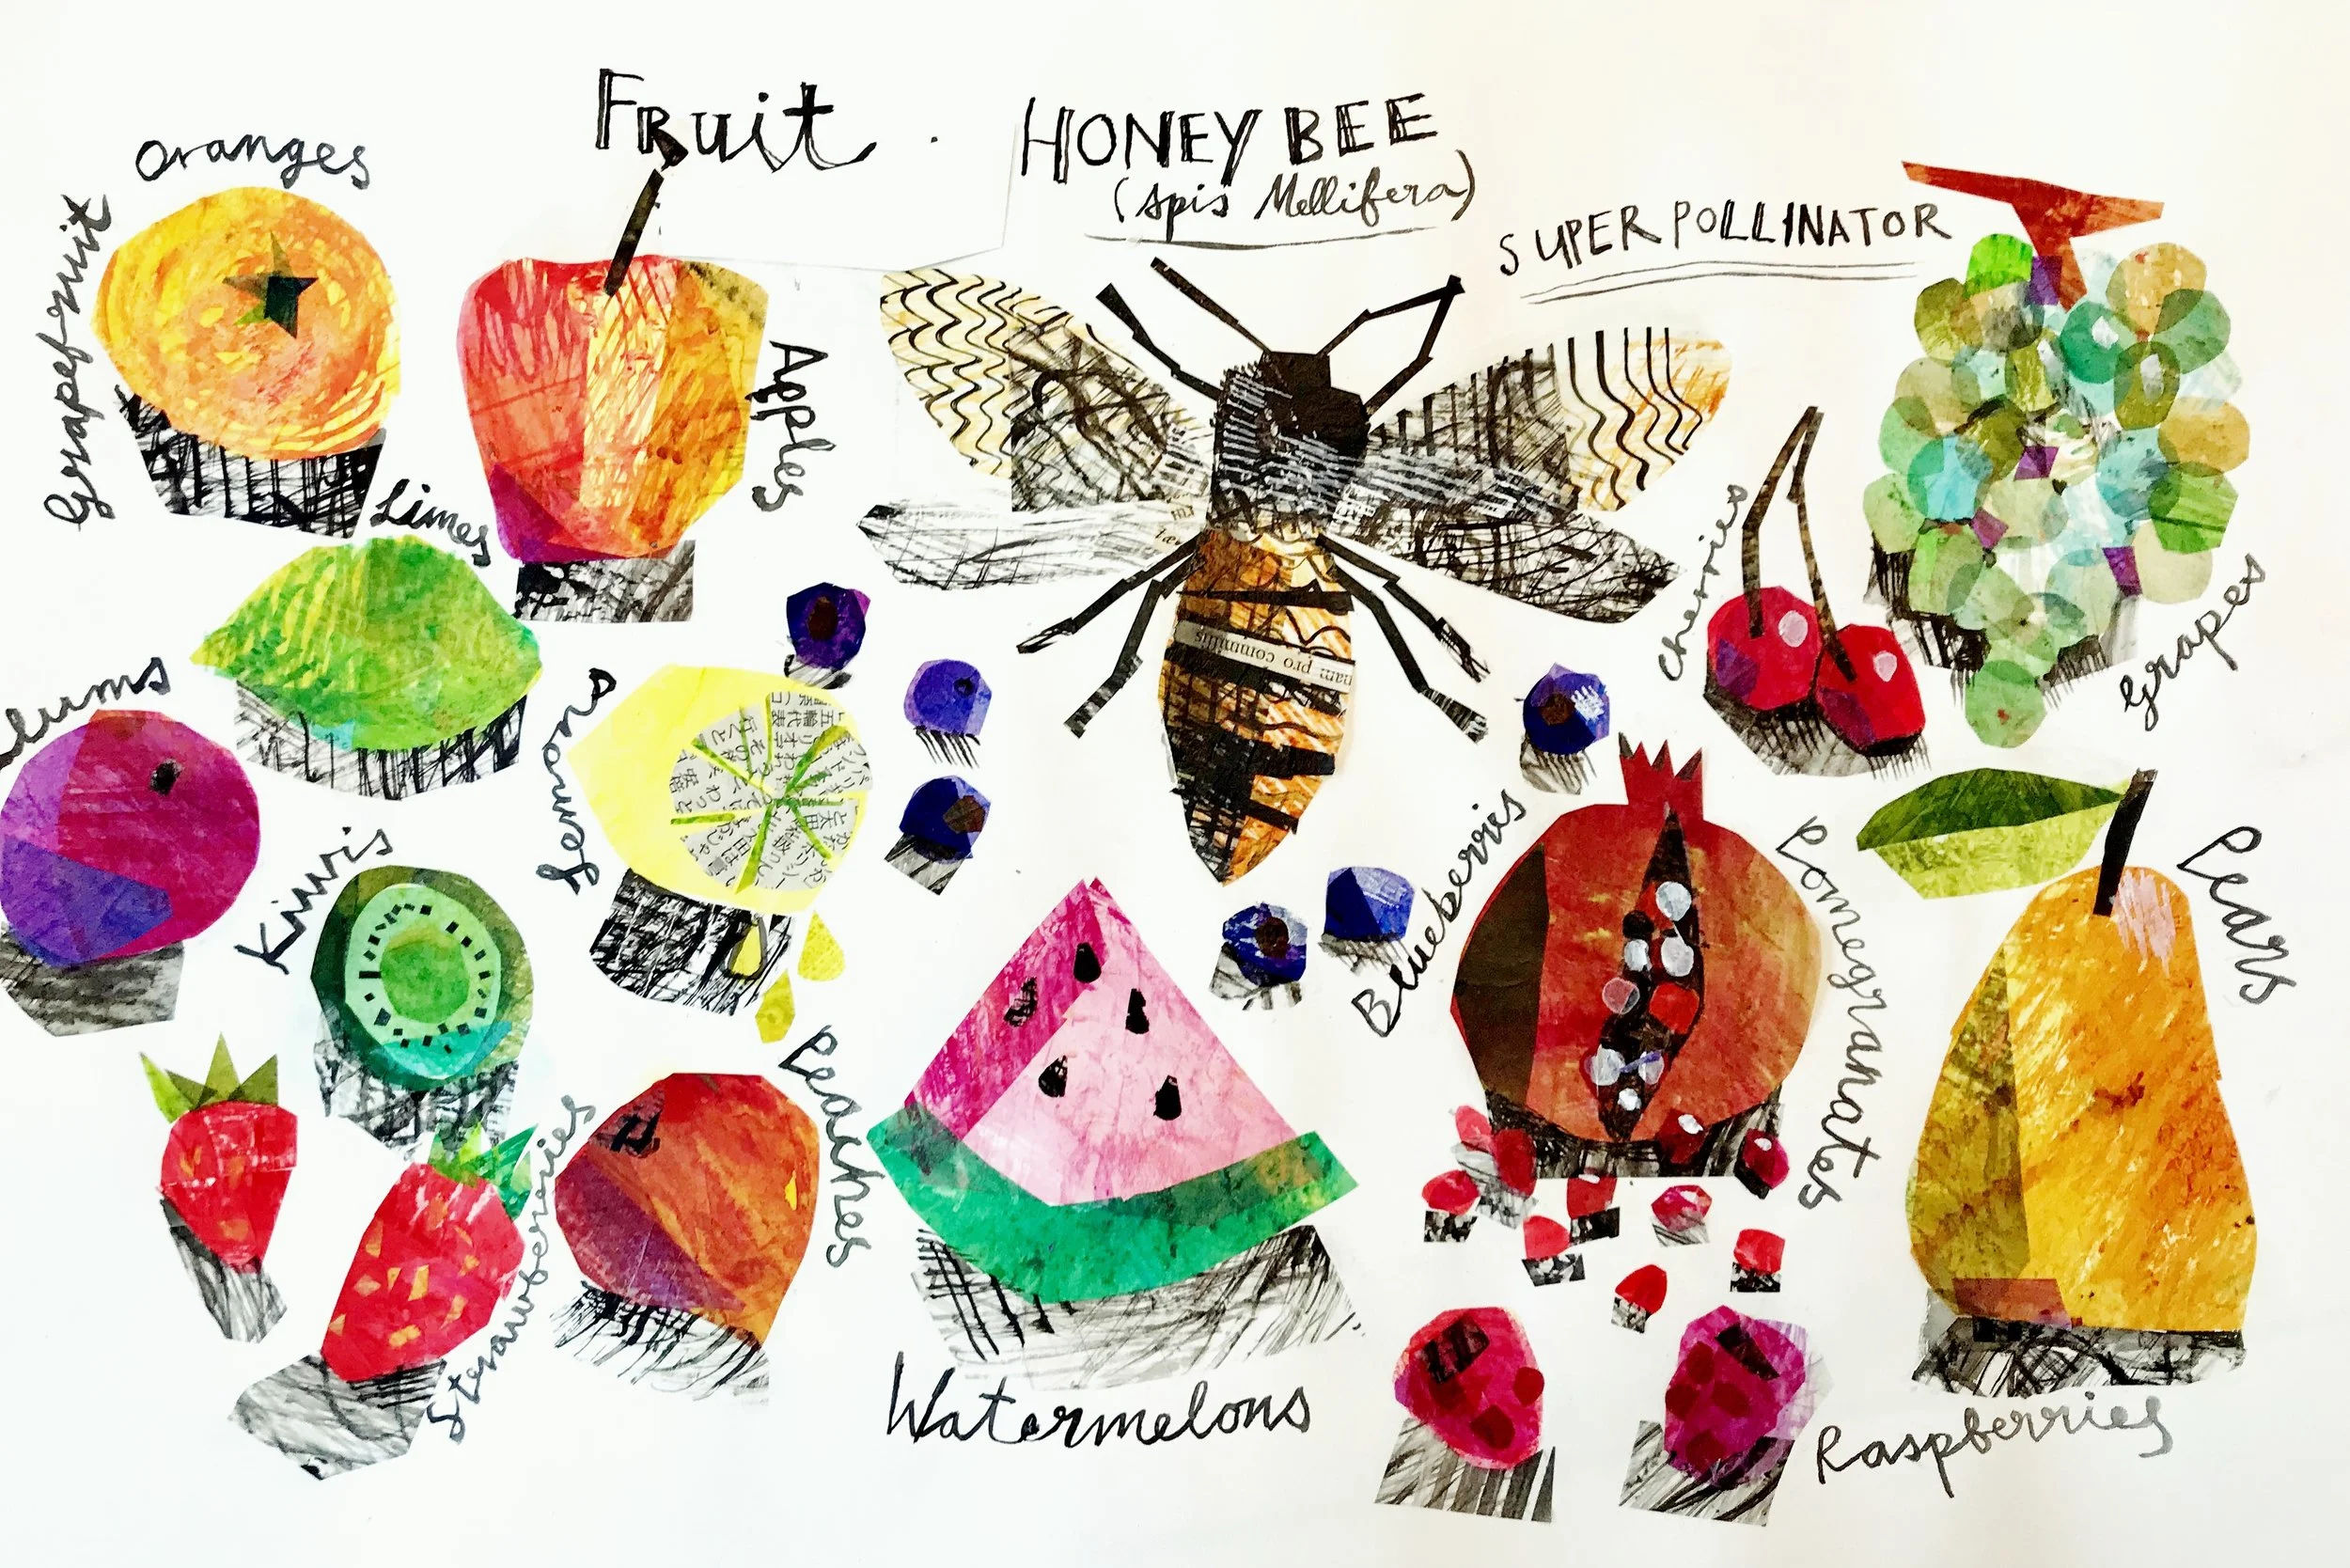 Fruit
HONEY BEE
(Apis Mellifera)
SUPER POLLINATOR
oranges
Grapefruit
Apples
Limes
Cherries
Grapes
lums
Lemons
nam pro comunis
Kiwis
Blueberris
Pomegranates
Pears
Peaches
Strawberries
Watermelons
Raspberries